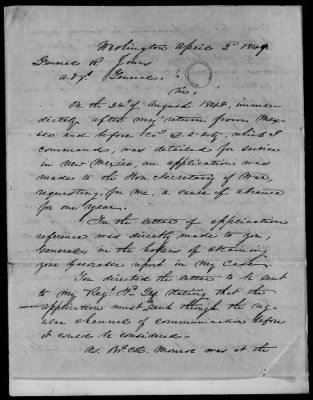 Washington April 2d 1849
General R. Jones
Adjt. General.
Sir,
On the 24th of August 1848, imme-
diately after my return from Mex-
ico and before Co. 2d Arty, which I
command, was detailed for service
in New Mexico, an application was
made to the Hon. Secretary of War,
requesting, for me, a leave of absence
for one year.
In the letter of application
reference was directly made to you,
General, in the hopes of obtaining
your favorable report in my case.
You directed the letter to be sent
to my Regtl. Hd. Qrs. stating that the
application must come through the reg-
ular channel of communication before
it could be considered.
As Bt. Col. Monroe was at the